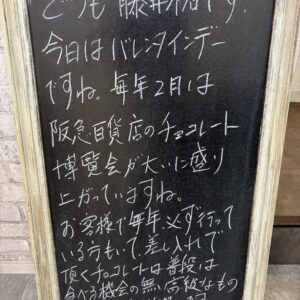 どうも 藤井 です.
今日は バレンタインデー
ですね。毎年2月は
阪急百貨店のチョコレート
博覧会が大いに盛り
上がっていますね。
お客様で毎年必ず行って
いる方もいて、差し入れで
頂くチョコレートは普段は
食べる機会の無い高級なもの